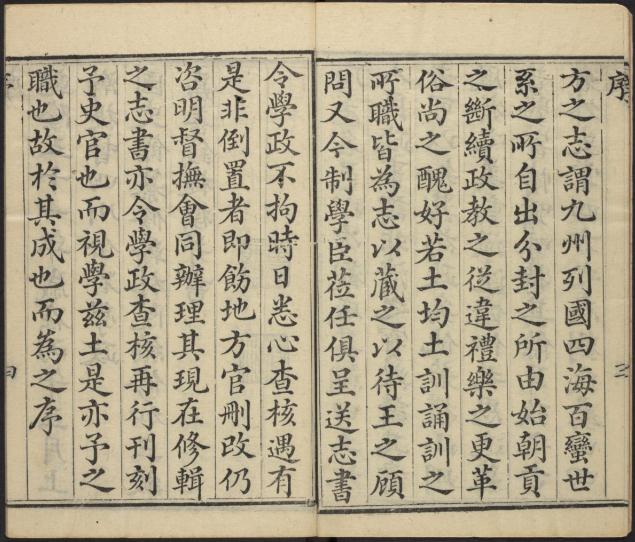 序
方之志謂九州列國四海百蠻世
系之所自出分封之所由始朝貢
之斷續政教之從違禮樂之更革
俗尚之醜好若土均土訓誦訓之
所職皆為志以藏之以待王之顧
問又今制學臣莅任俱呈送志書
令學政不拘時日悉心查核遇有
是非倒置者即飭地方官刪改仍
咨明督撫會同辦理其現在修輯
之志書亦令學政查核再行刊刻
予史官也而視學茲土是亦予之
職也故於其成也而為之序